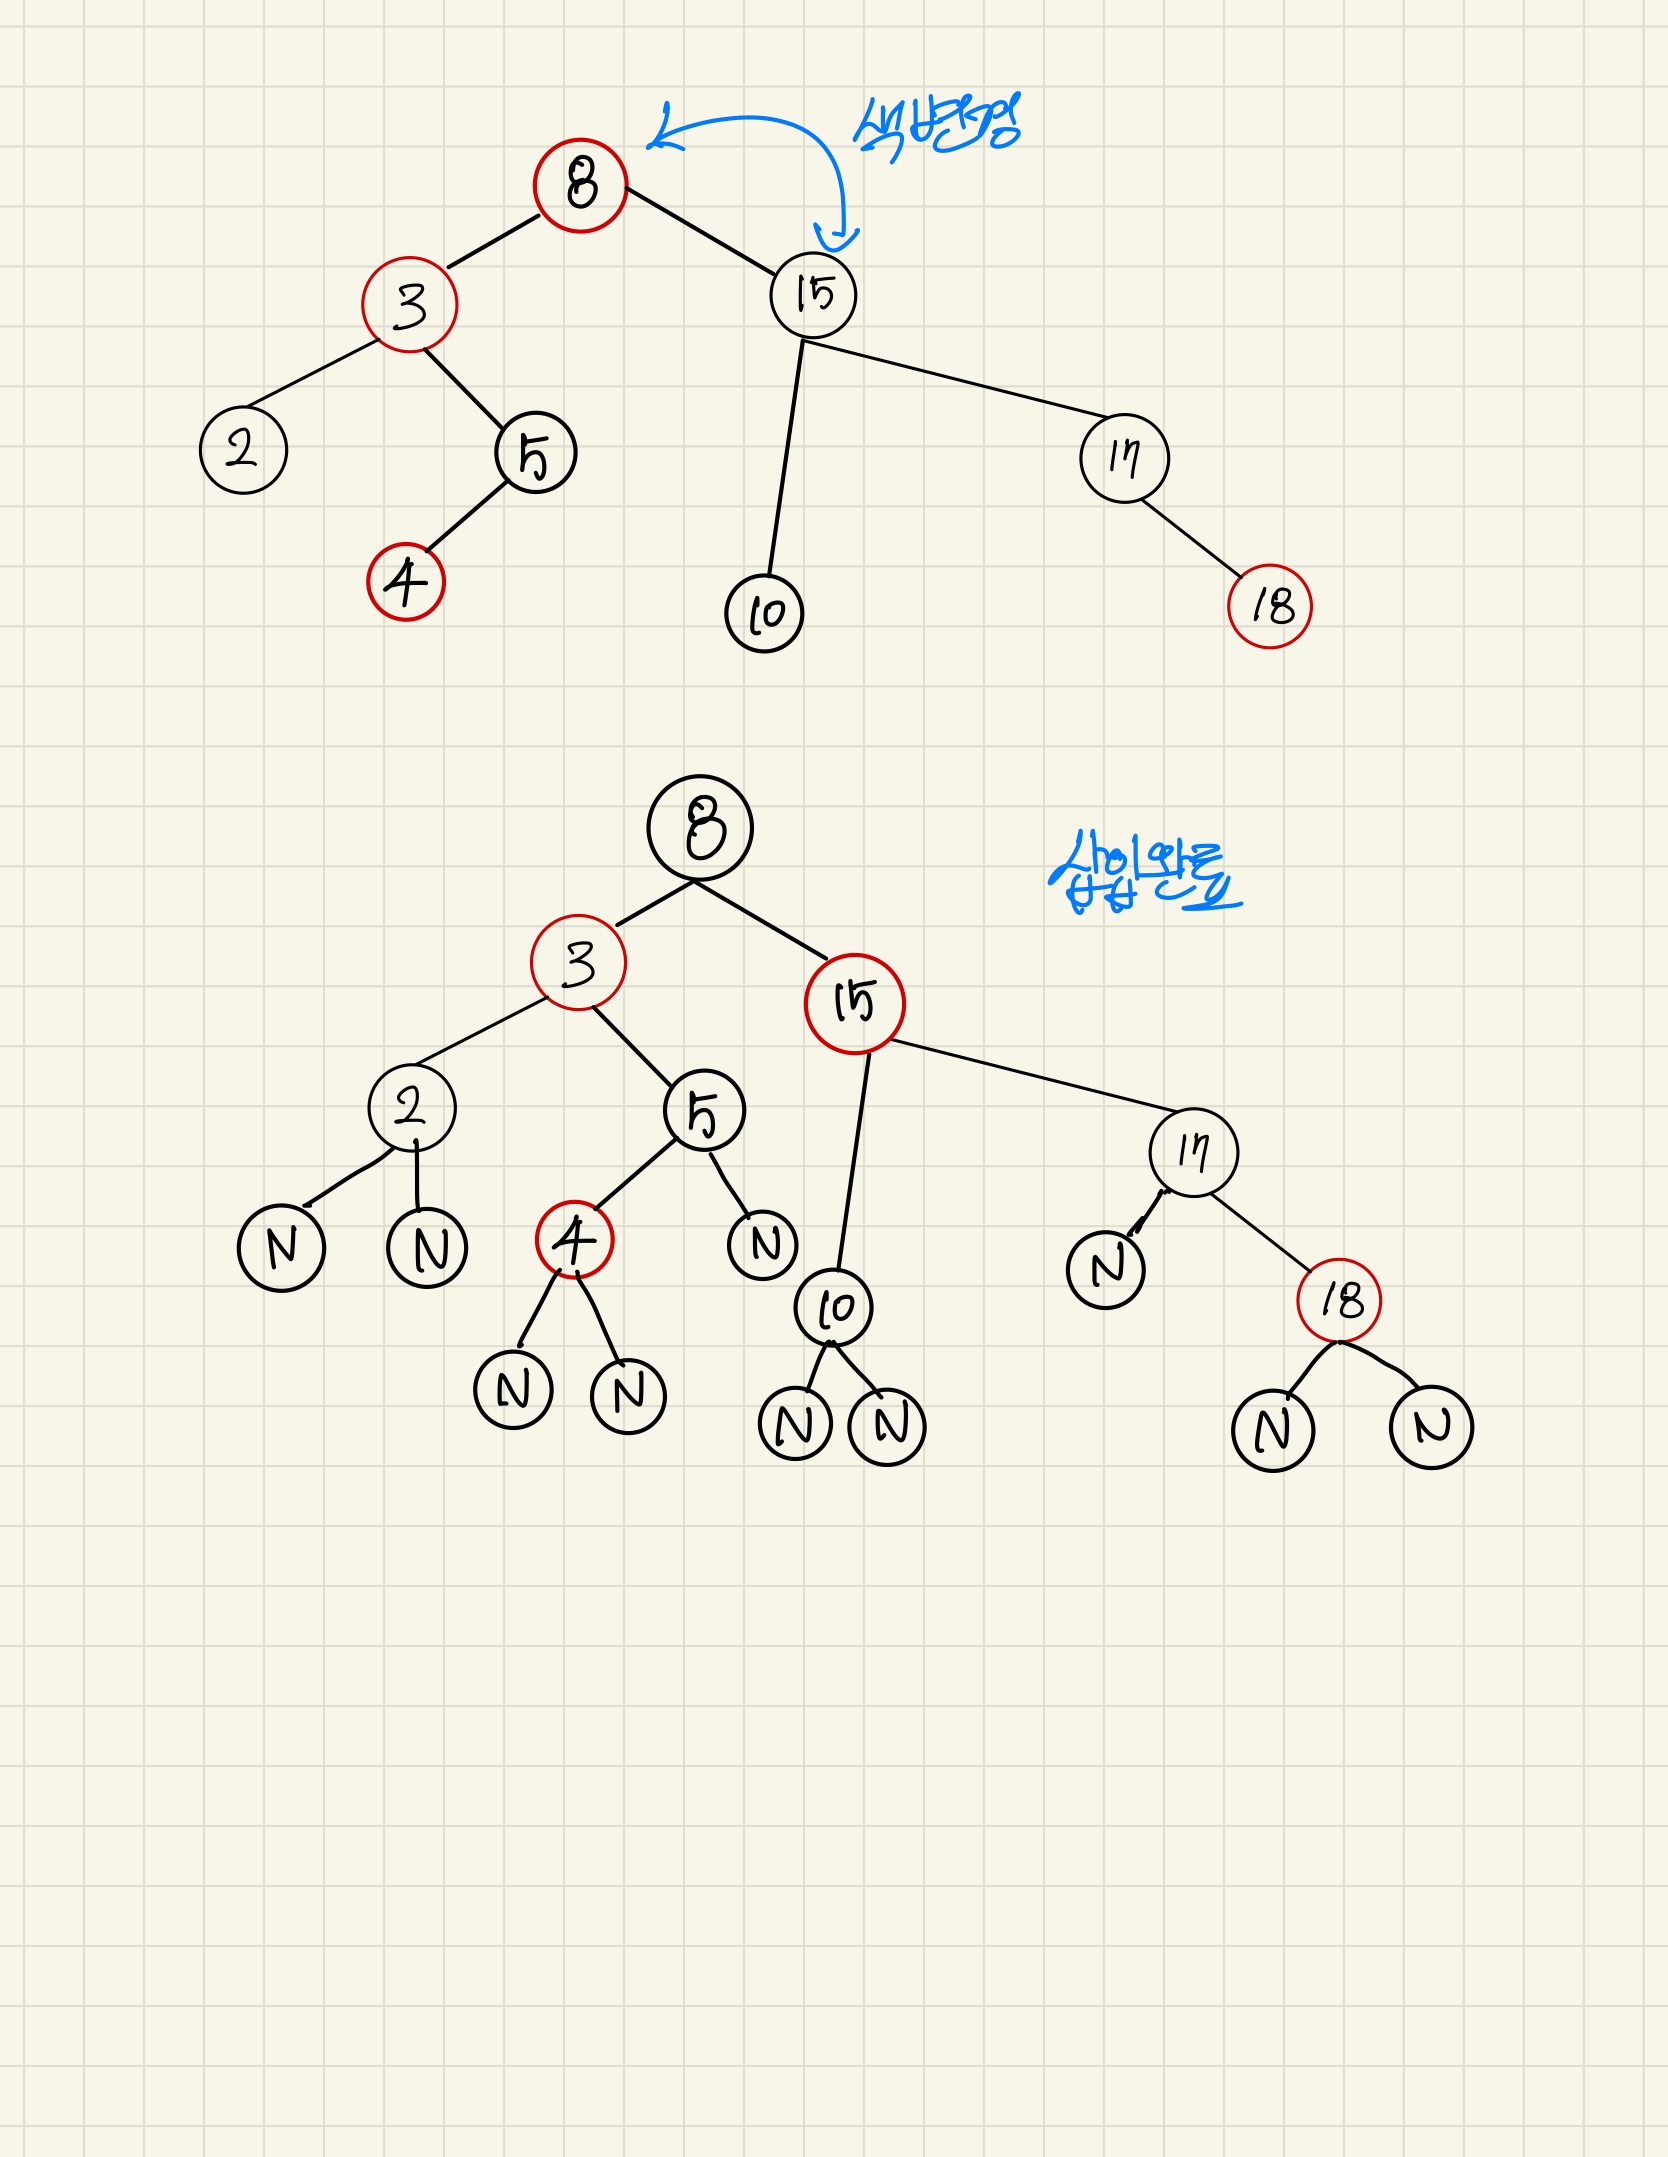 색변경
8
3
15
2
5
17
4
10
18
8
삽입완료
3
15
2
5
17
N
N
4
N
10
N
18
N
N
N
N
N
N